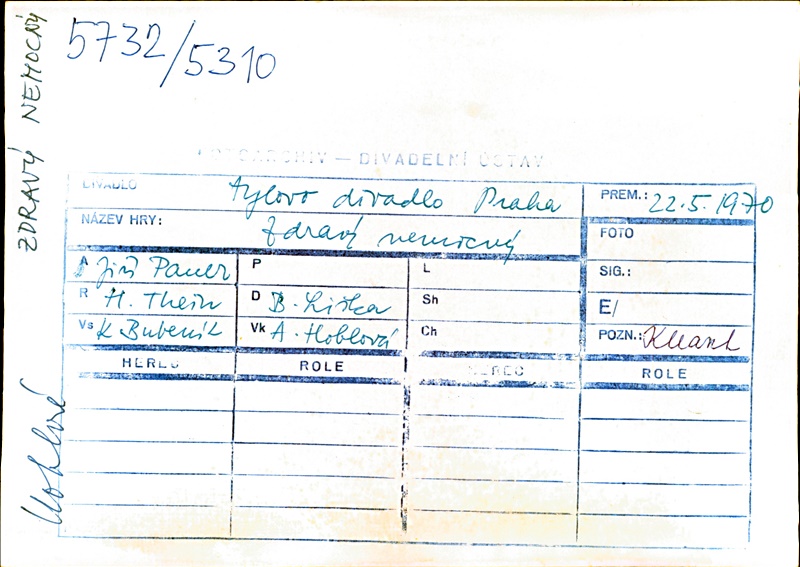 5732/5310
ZDRAVÝ NEMOCNÝ
FOTOARCHIV — DIVADELNÍ ÚSTAV
DIVADLO Tylovo divadlo Praha PREM.: 22.5.1970
NÁZEV HRY: Zdravý nemocný FOTO
A Jiří Pauer P L SIG.:
R H. Thein D B. Liška Sh E/
Vs K Bubeník Vk A. Hoblová Ch POZN.:
HEREC ROLE HEREC ROLE